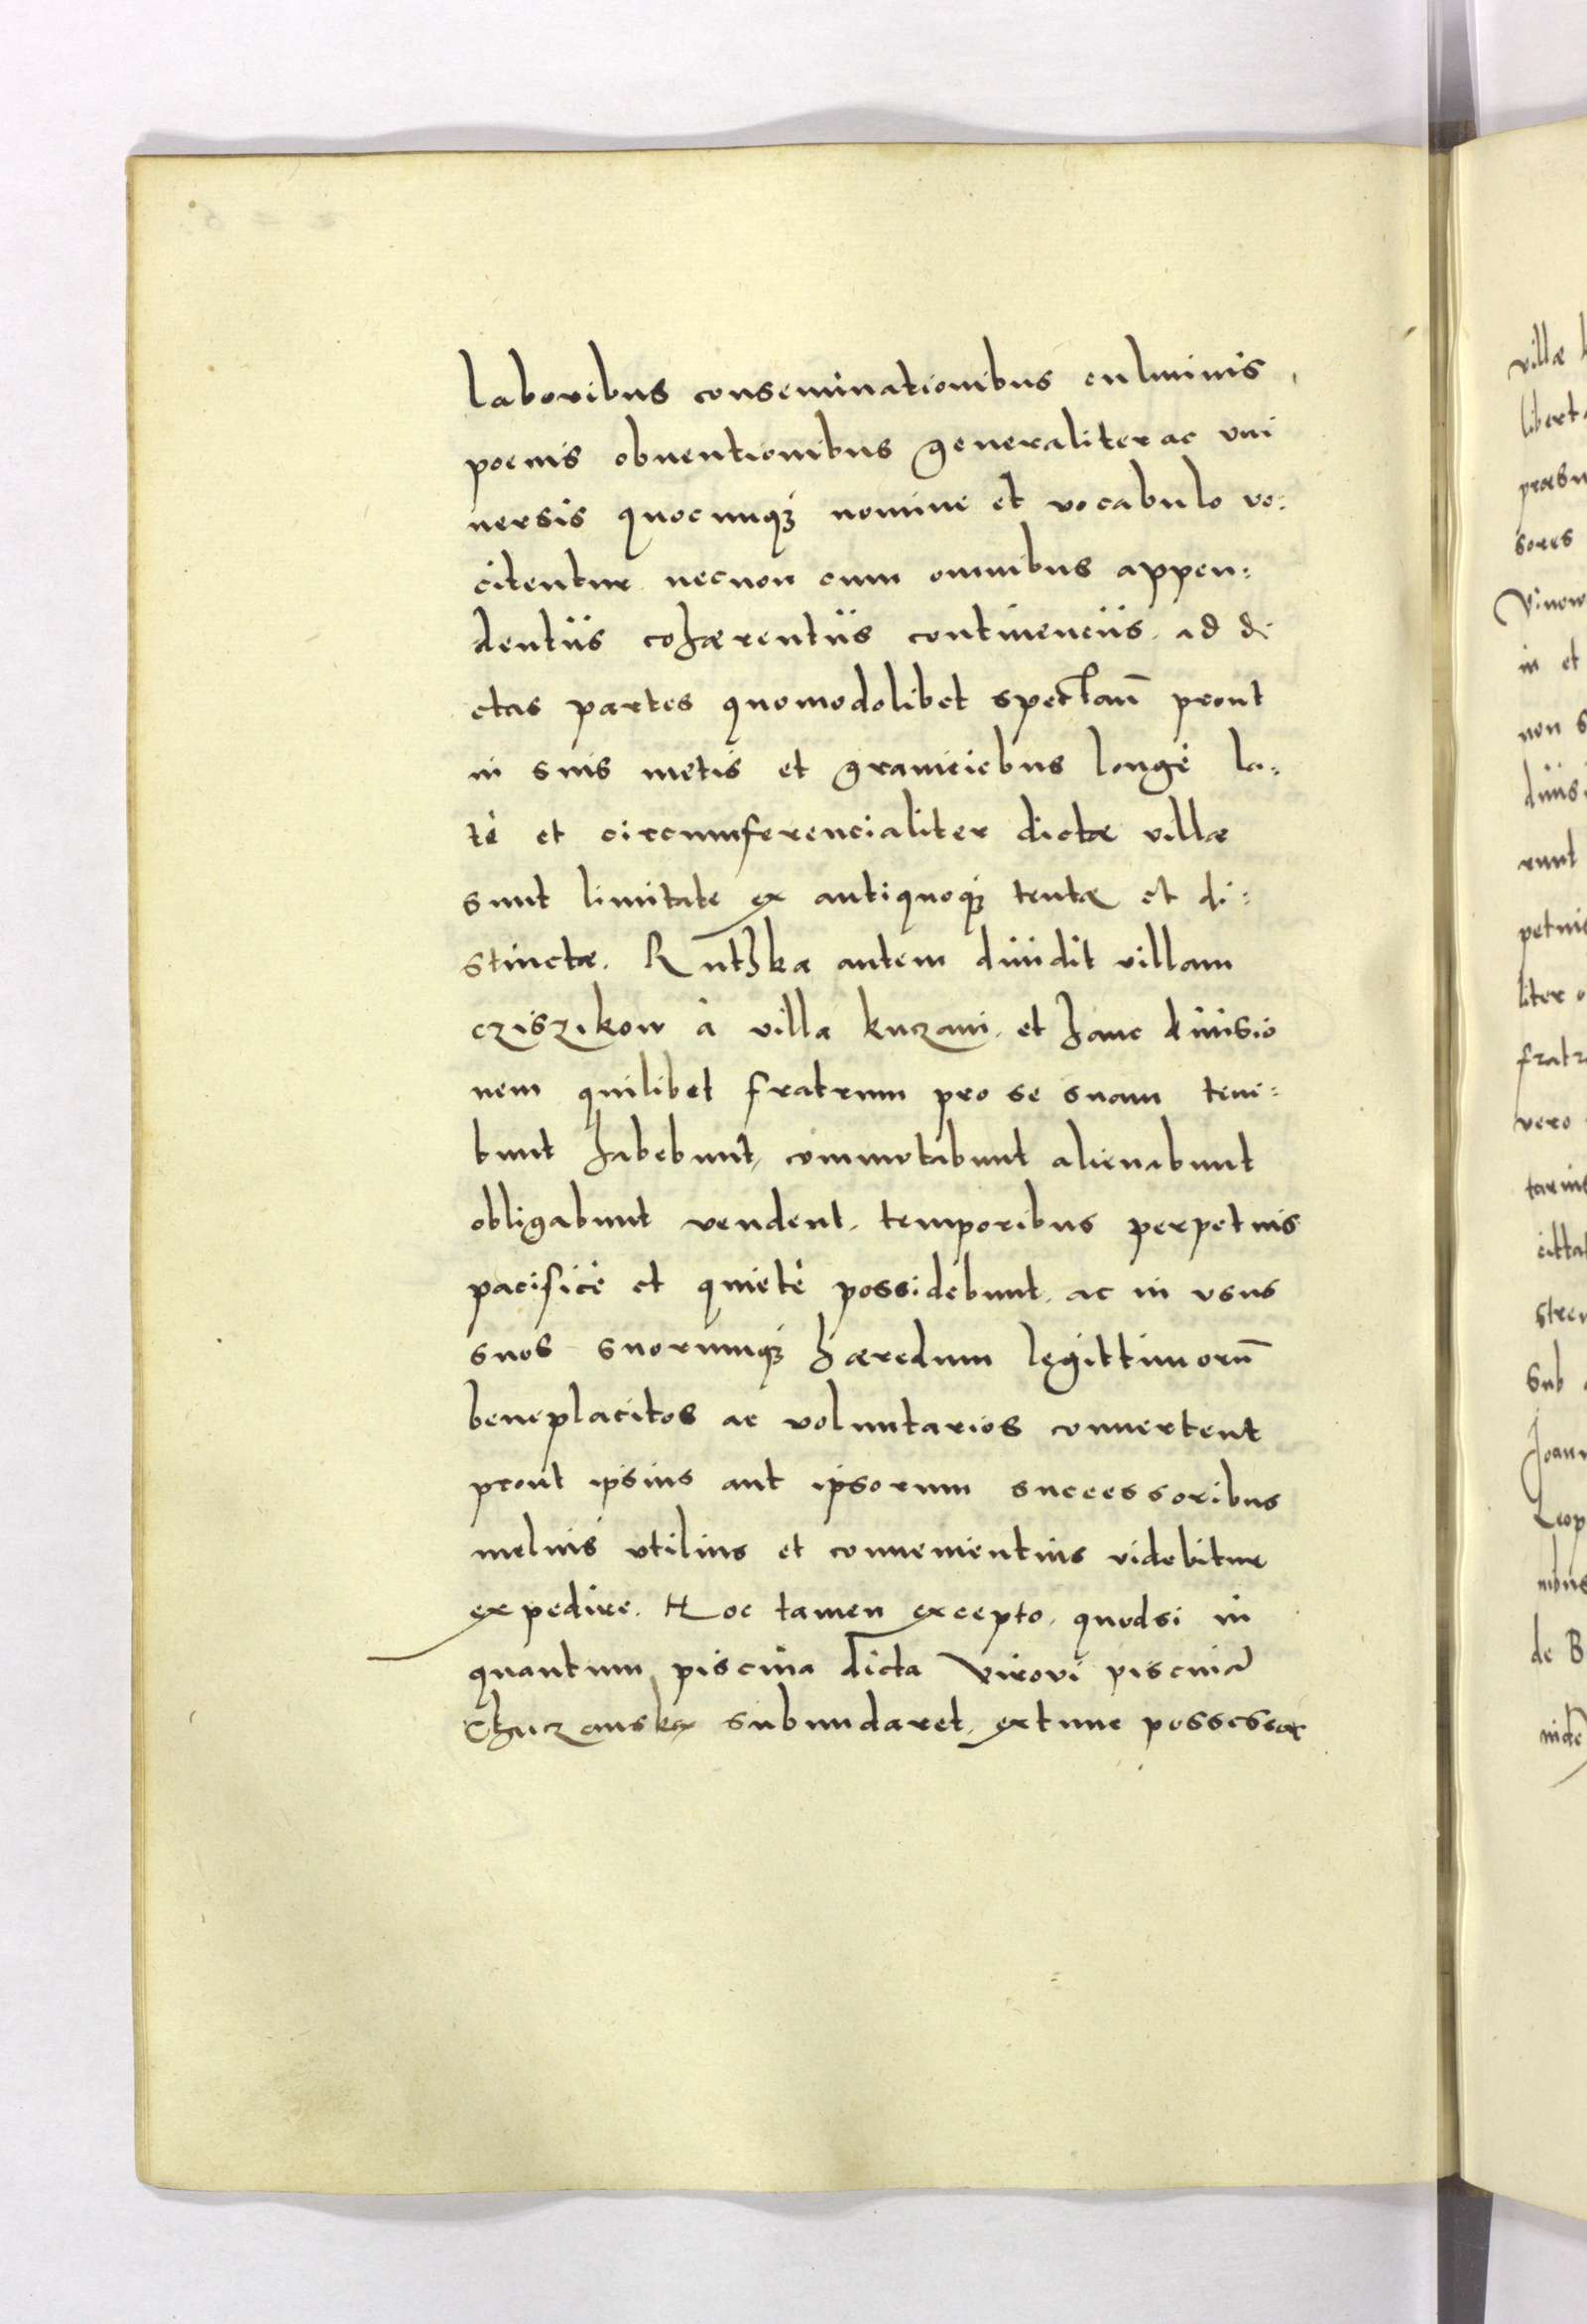 laboribus conseminationibus culminis,
poenis obuentionibus generaliter ac vni
uersis quocunq3 nomine et vocabulo vo:
citentur necnon cum omnibus appen:
dentiis cohærentiis contineneiis. ad di
ctas partes quomodolibet spectañ prout
in suis metis et graniciebus longè la:
tè et circumferencialiter dictæ villæ
sunt limitate ex antiquoq3 tentæ et di:
stinctæ. Ruthka autem diuidit villam
cziszikow à villa kuzani. et hanc diuisio
nem quilibet fratrum pro se suam teni:
bunt habebunt, commutabunt alienabunt
obligabunt vendent. temporibus perpetuis
pacificè et quietè possidebunt. ac in vsus
suos suorumq3 hæredum legittimorũ
beneplacitos ac voluntarios conuertent
prout ipsius aut ipsorum successoribus
melius vtilius et conuenientius videbitur
expedire. Hoc tamen excepto. quodsi in
quantum piscina dicta Virovi piscinã
Chuzanskæ subundaret. extunc possessor
villæ
libert
præsu
sores
Vinow
in et
non s
diuis
runt
petuis
liter
fratr
vero
tarius
citta
stren
sub
Joann
Leop
nibus
de B